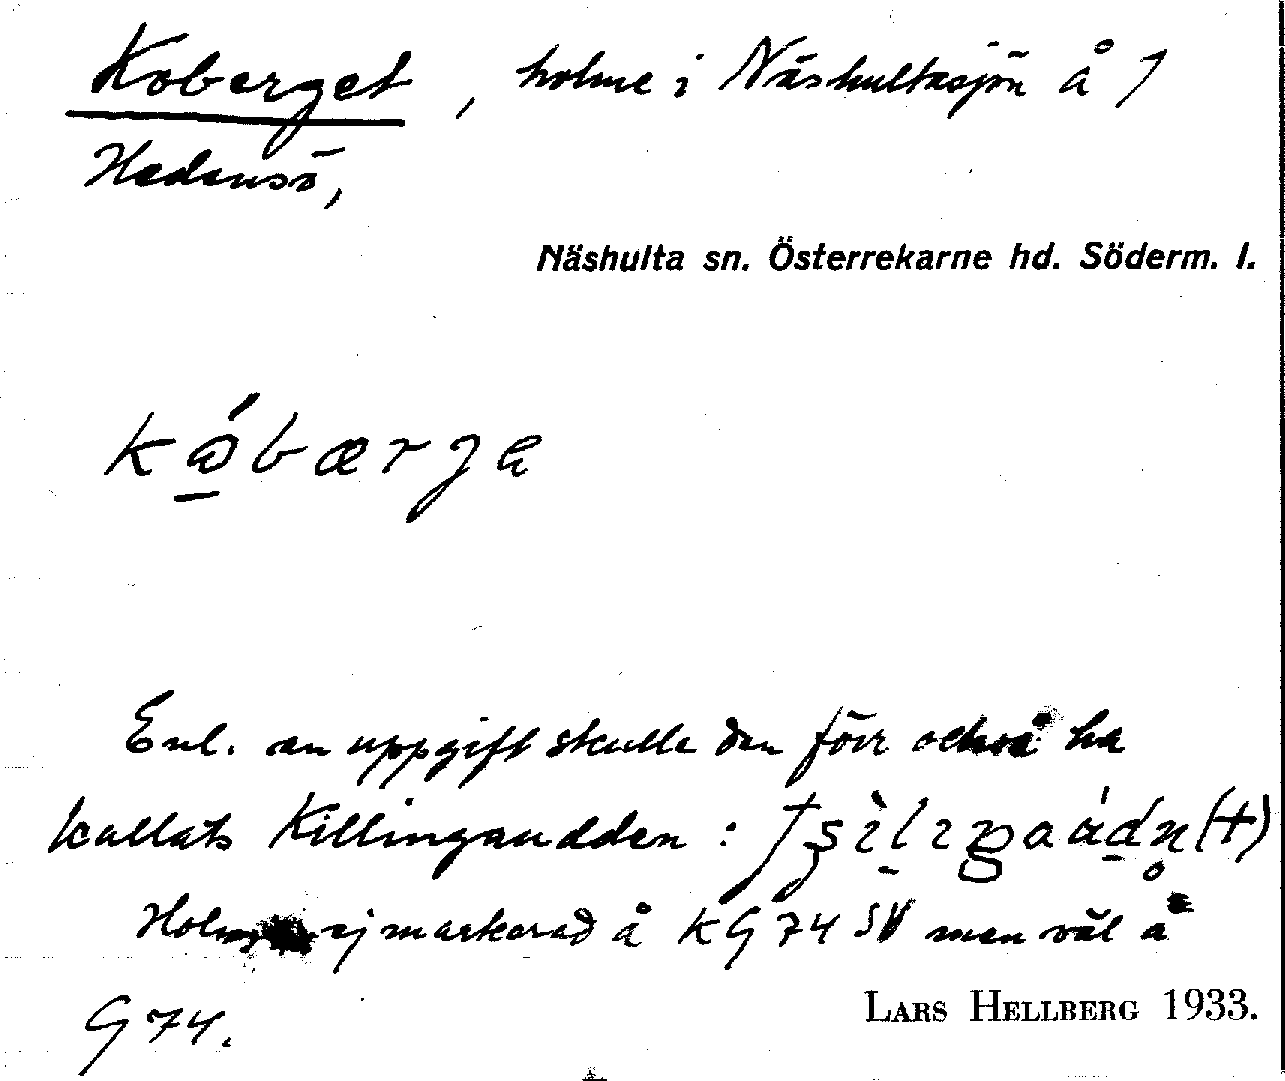 Koberget, holme i Näshultasjön å
Hedensö,
Näshulta sn. Österrekarne hd. Söderm. l.
Enl. en uppgift skulle den förr också ha
kallats Killingaudden :
Holmen ej markerad å KG 74 SV men väl å
G 74.
LARS HELLBERG 1933.